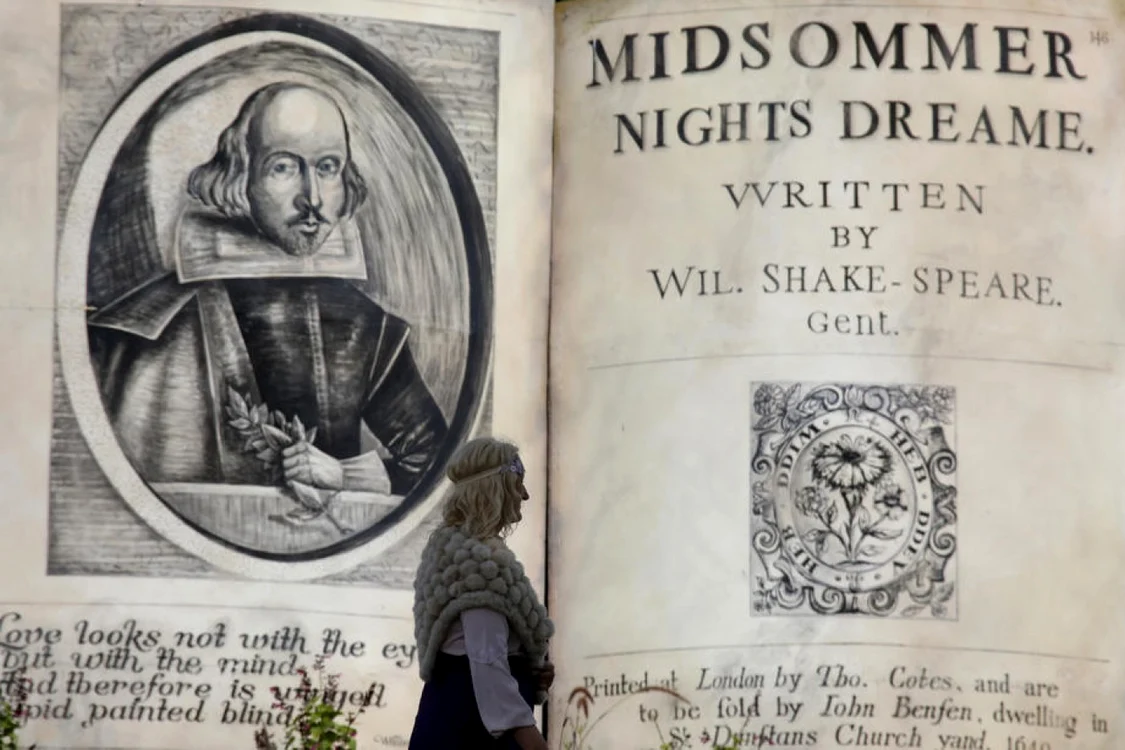 Love looks not with the ey
but with the mind.
And therefore is winged
upid painted blind
146
MIDSOMMER
NIGHTS DREAME.
VVRITTEN
BY
WIL. SHAKE-SPEARE.
Gent.
HEB DDIM HEB DDIEV
Printed at London by Tho. Cotes, and are
to be sold by Iohn Bensen, dwelling in
St. Dunstans Church yard, 1640